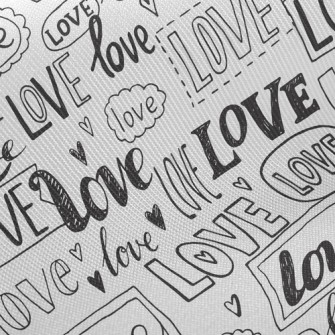 LOVE
love
LOVE
LOVE
love
LOVE
LOVE
love
LOVE
LOVE
love
LOVE
love